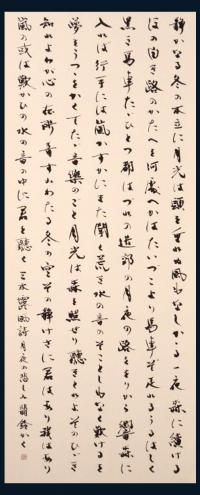 静かなる冬の木立に月光は頭を垂れぬ風もなしかゝる一夜森に續ける
ほの白き路のかたへを何處へかはたいづこより馬車ぞ走れるうるはしく
黒き馬車たゞひとつ都はづれの近郊の月夜の路をきりから響森に
入れば行手には嵐かすかにまた聞く荒き水の音のそこともなく歎けるを
夢とうつゝをかくてたゞ音樂のごと月光は森を照せり聽きとれよそのひゞき
知れよわが心の在所音すみわたる冬の空その静けさに君はあり我はあり
嵐の或は歎かひの水の音の中に君を聽く 三木露風詩 月夜の悩しみ かく